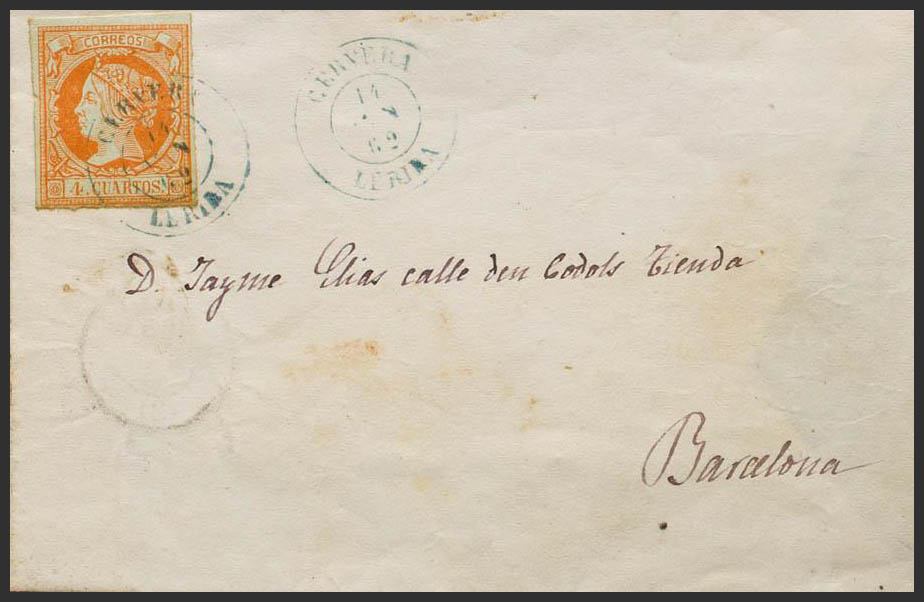 CORREOS
4 CUARTOS
CERVERA
LERIDA
CERVERA
14
7
62
LERIDA
D. Jayme Elias calle den Codols Tienda
Barcelona